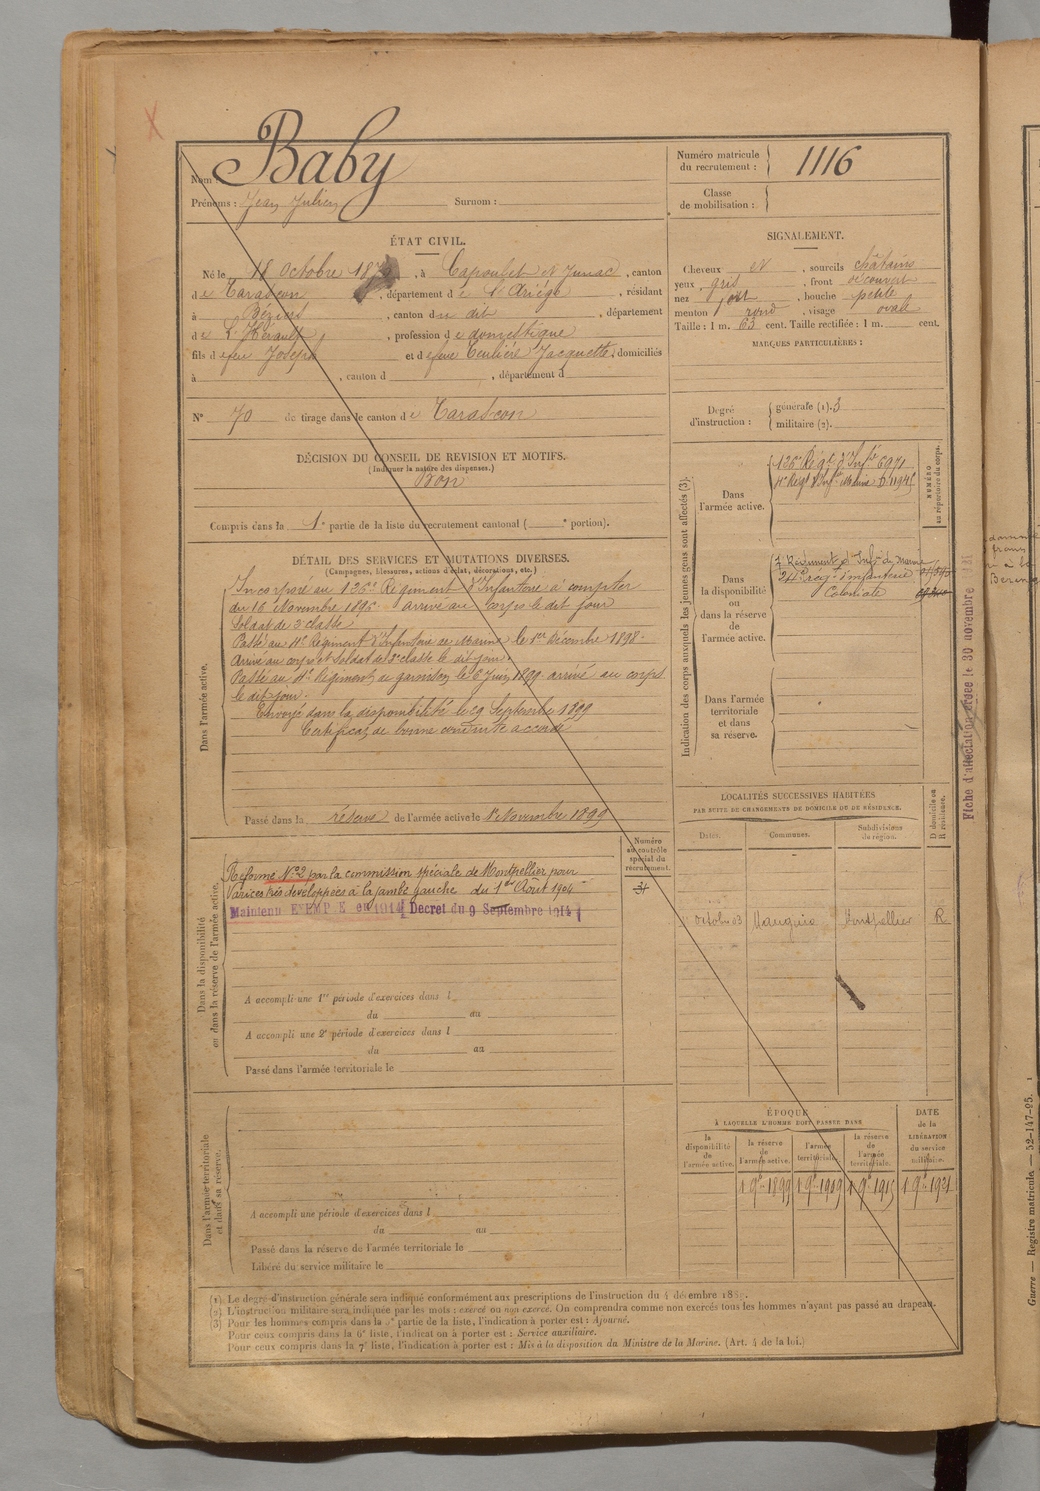 Nom : Baby
Prénoms : Jean Julien Surnom :
Numéro matricule du recrutement : 1116
Classe de mobilisation :
ÉTAT CIVIL.
Né le 18 Octobre 187 , à Capoulet et Junac , canton
de Tarascon , département de l'Ariège , résidant
à Béziers , canton du dit , département
de L'Hérault , profession de domestique
fils de feu Joseph et de feue Jacquette , domiciliés
à , canton d , département d
N° 70 de tirage dans le canton de Tarascon
SIGNALEMENT.
Cheveux et , sourcils châtains
yeux gris , front découvert
nez fort , bouche petite
menton rond , visage ovale
Taille : 1 m. 63 cent. Taille rectifiée : 1 m. cent.
MARQUES PARTICULIÈRES :
Degré d'instruction : générale (1). 3
militaire (2).
DÉCISION DU CONSEIL DE REVISION ET MOTIFS.
(Indiquer la nature des dispenses.)
Bon
Compris dans la 1e partie de la liste du recrutement cantonal ( e portion).
DÉTAIL DES SERVICES ET MUTATIONS DIVERSES.
(Campagnes, blessures, actions d'éclat, décorations, etc.)
Dans l'armée active.
Incorporé au 126e Régiment d'Infanterie à compter
du 16 Novembre 1896 arrivé au corps le dit jour
Soldat de 2e classe
Passé au 4e Régiment d'Infanterie de Marine le 1er Décembre 1898
Arrivé au corps et soldat de 2e classe le dit jour.
Passé au 4e Régiment de garnison le 6 Juin 1899 arrivé au corps
le dit jour.
Envoyé dans la disponibilité le 29 Septembre 1899
Certificat de bonne conduite accordé
Passé dans la réserve de l'armée active le 1er Novembre 1899
Indication des corps auxquels les jeunes gens sont affectés (3).
NUMÉRO au répertoire du corps.
Dans l'armée active.
126e Régt d'Infie 6971
4e Régt d'Infie Marine
Dans la disponibilité ou dans la réserve de l'armée active.
Régiment d'Infie de Marine
24e Régt d'infanterie
Coloniale
Dans l'armée territoriale et dans sa réserve.
Fiche d'affectation le 30 novembre
Dans la disponibilité ou dans la réserve de l'armée active.
Numéro au contrôle spécial du recrutement.
Réformé N°2 par la commission spéciale de Montpellier pour
Varices très développées à la jambe gauche du 1er Août 1904
Maintenu EXEMPTÉ en 1914 Décret du 9 Septembre 1914
A accompli une 1re période d'exercices dans l
du au
A accompli une 2e période d'exercices dans l
du au
Passé dans l'armée territoriale le
LOCALITÉS SUCCESSIVES HABITÉES
PAR SUITE DE CHANGEMENTS DE DOMICILE OU DE RÉSIDENCE.
Dates. Communes. Subdivisions de région. D domicile ou R résidence.
Octobre 03 Mauguio Montpellier R
Dans l'armée territoriale et dans sa réserve.
A accompli une période d'exercices dans l
du au
Passé dans la réserve de l'armée territoriale le
Libéré du service militaire le
ÉPOQUE
À LAQUELLE L'HOMME DOIT PASSER DANS
la disponibilité de l'armée active.
la réserve de l'armée active.
l'armée territoriale.
la réserve de l'armée territoriale.
DATE de la LIBÉRATION du service militaire.
1 9bre 1899 1 9bre 1909 1 9bre 1915 1 9bre 1921
(1) Le degré d'instruction générale sera indiqué conformément aux prescriptions de l'instruction du 4 décembre 18
(2) L'instruction militaire sera indiquée par les mots : exercé ou non exercé. On comprendra comme non exercés tous les hommes n'ayant pas passé au drapeau.
(3) Pour les hommes compris dans la partie de la liste, l'indication à porter est : Ajourné.
Pour ceux compris dans la 6e liste, l'indication à porter est : Service auxiliaire.
Pour ceux compris dans la 7e liste, l'indication à porter est : Mis à la disposition du Ministre de la Marine. (Art. 4 de la loi.)
Guerre — Registre matricule. — 52-147-95.